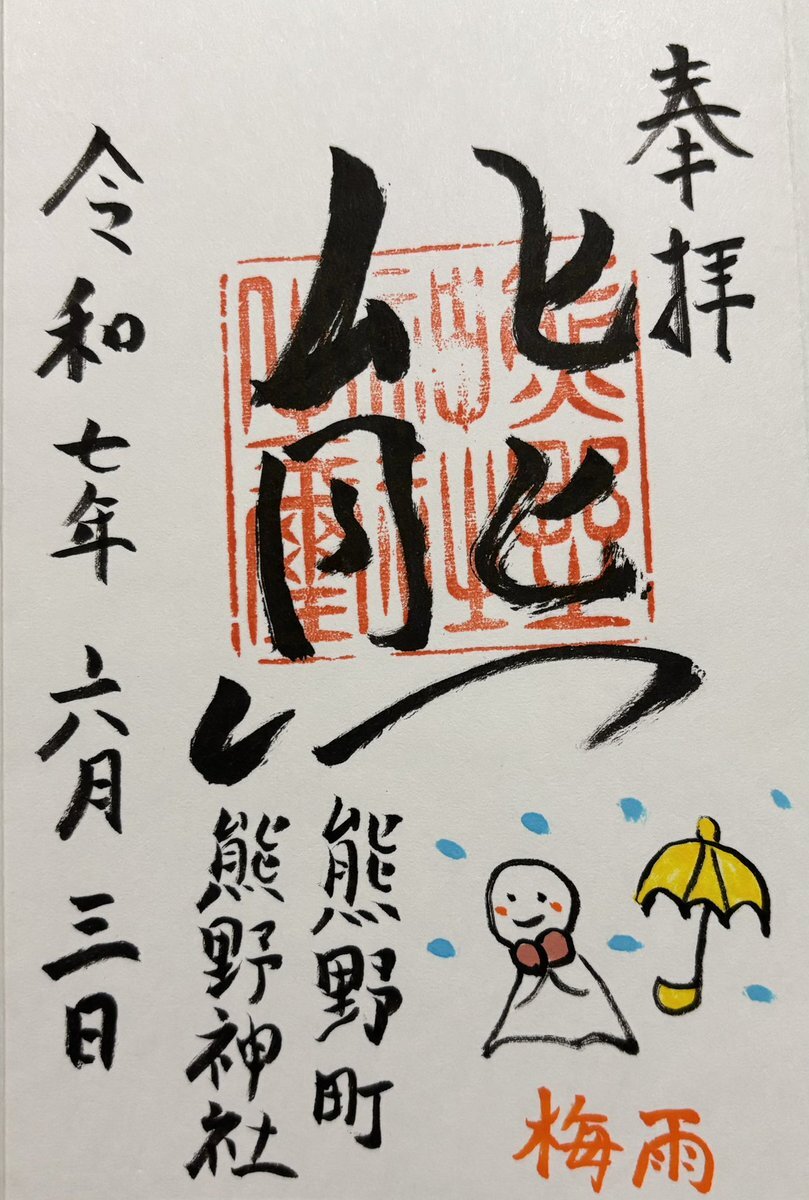 奉拝
熊
熊野町
熊野神社
令和七年 六月 三日
梅雨